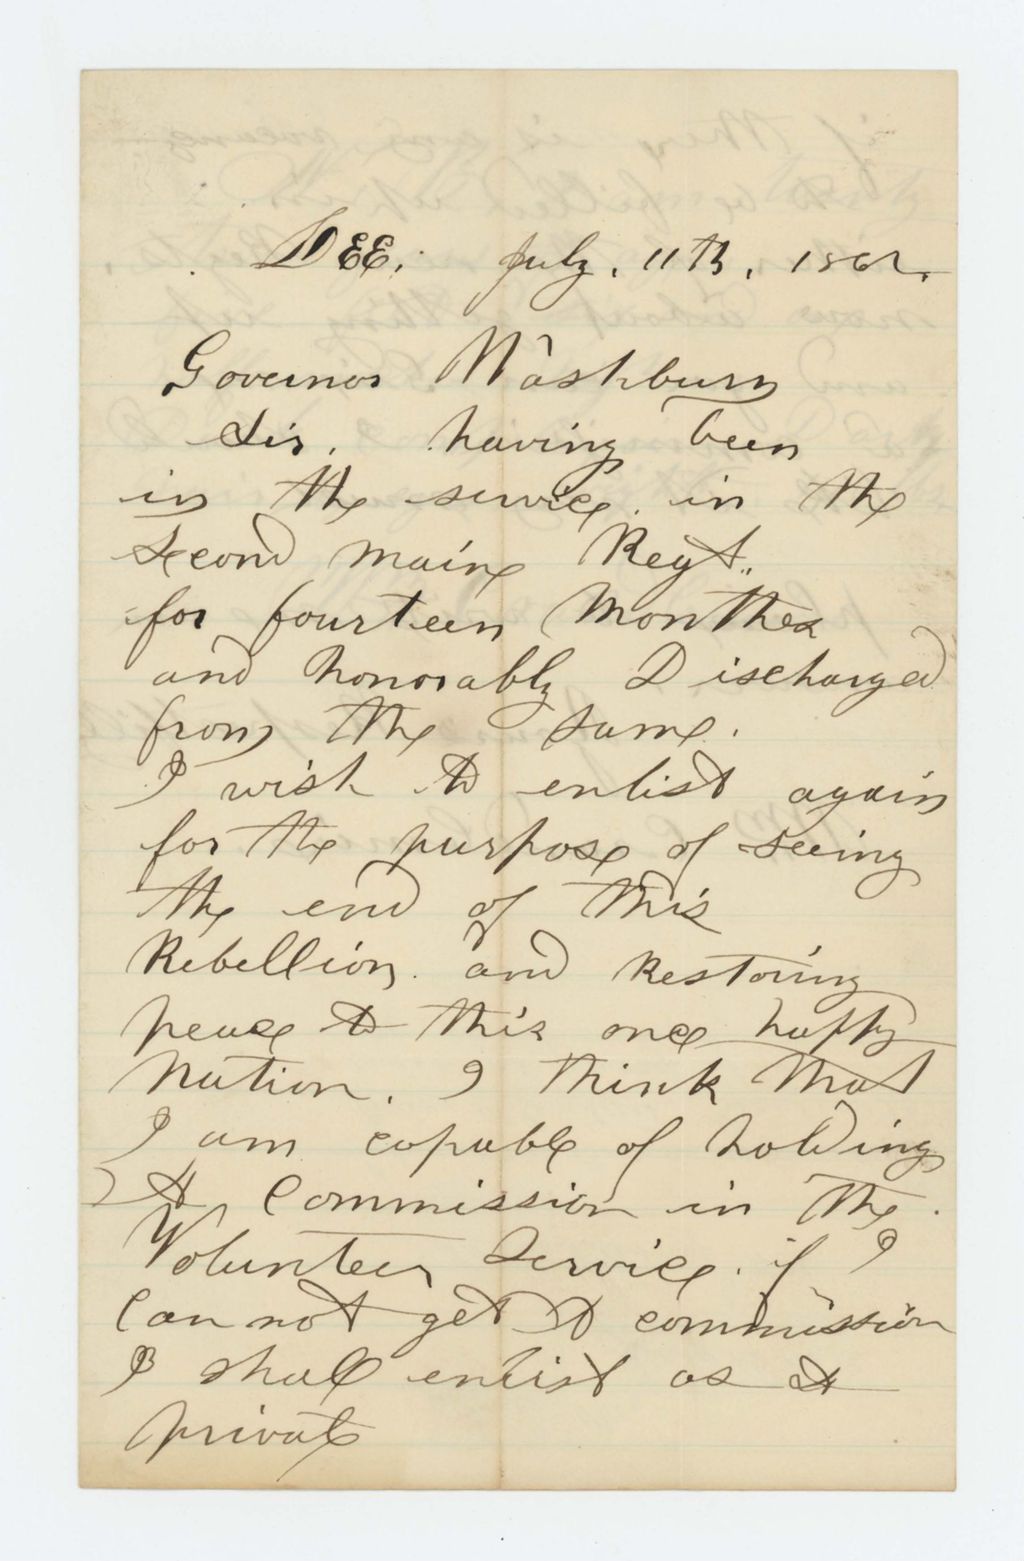 LEE, July, 11th, 1862.
Governor Washburn
Sir, having been
in the service, in the
second maine Regt.,
for fourteen Monthes
and honorably Discharged
from the same.
I wish to enlist again
for the purpose of seeing
the end of this
Rebellion. and Restoring
peace to this once happy
Nation. I think that
I am capable of holding
A Commission in the
Volunteer Service. if I
Can not get A commission
I shall enlist as A
private